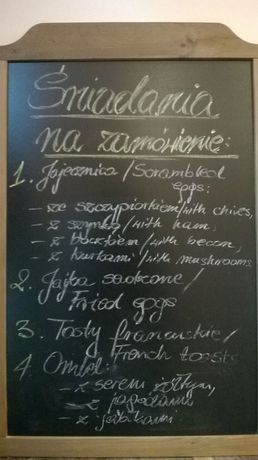 Śniadania
na zamówienie:
1. Jajecznica / Scrambled
eggs:
- ze szczypiorkiem / with chives,
- z szynką / with ham,
- z boczkiem / with becon,
- z kurkami / with mushrooms
2. Jajka sadzone /
Fried eggs
3. Tosty francuskie /
French toasts
4. Omlet:
- z serem żółtym,
- z
z jabłkami